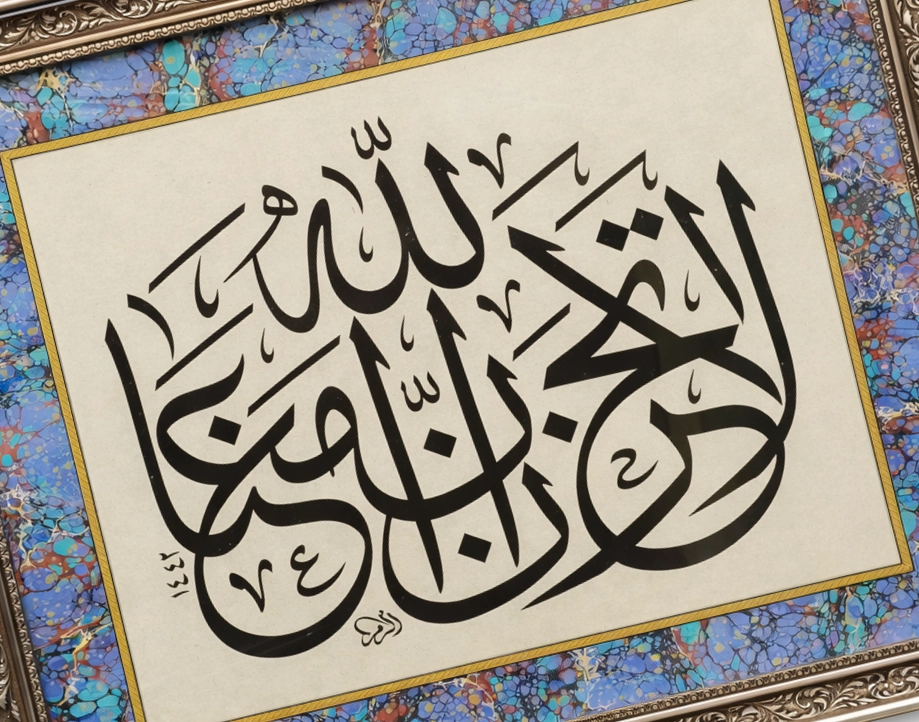 لا تحزن إن الله معنا
١٤٤١